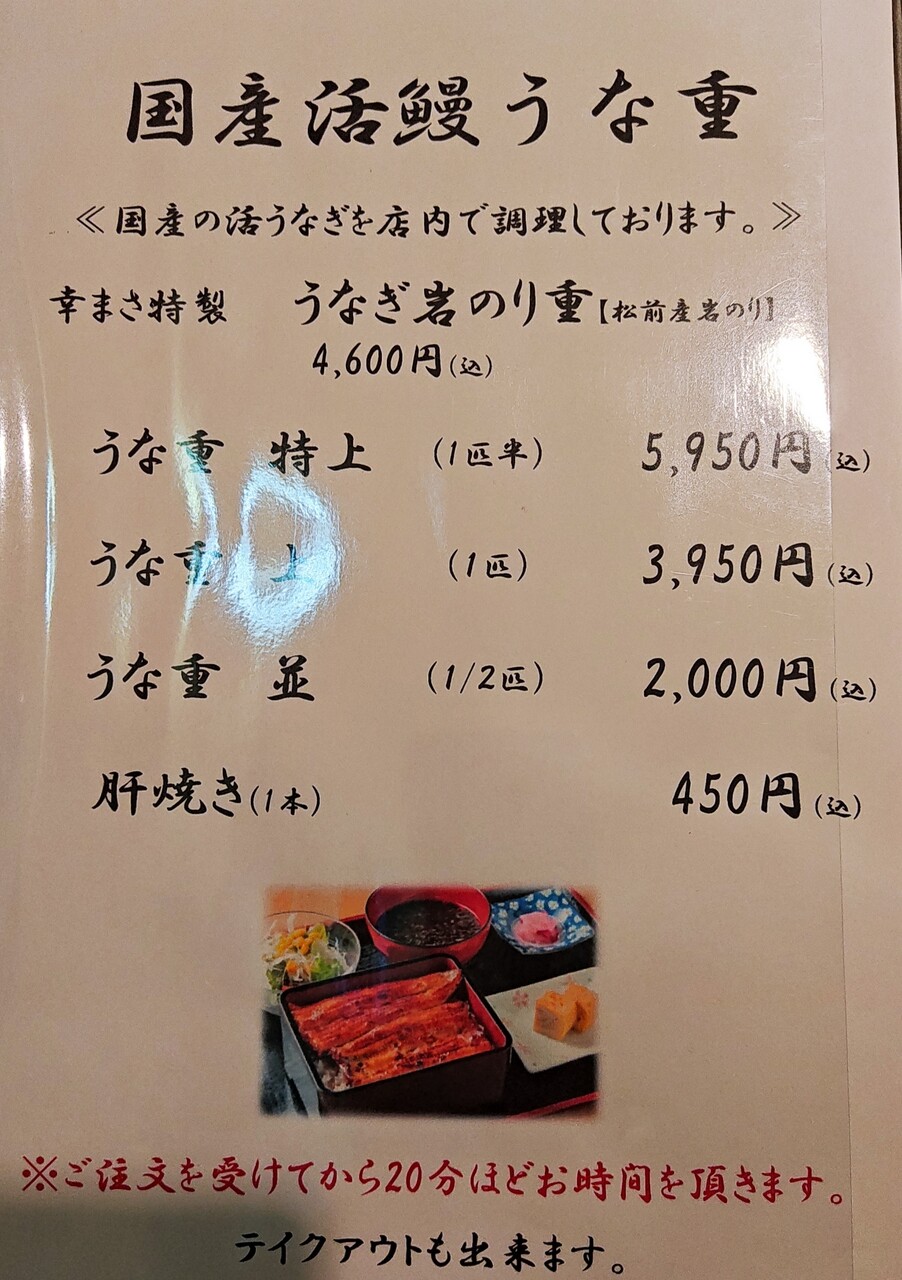 国産活鰻うな重
≪国産の活うなぎを店内で調理しております。≫
幸まさ特製 うなぎ岩のり重【松前産岩のり】
4,600円(込)
うな重 特上 (1匹半) 5,950円(込)
うな重 上 (1匹) 3,950円(込)
うな重 並 (1/2匹) 2,000円(込)
肝焼き(1本) 450円(込)
※ご注文を受けてから20分ほどお時間を頂きます。
テイクアウトも出来ます。